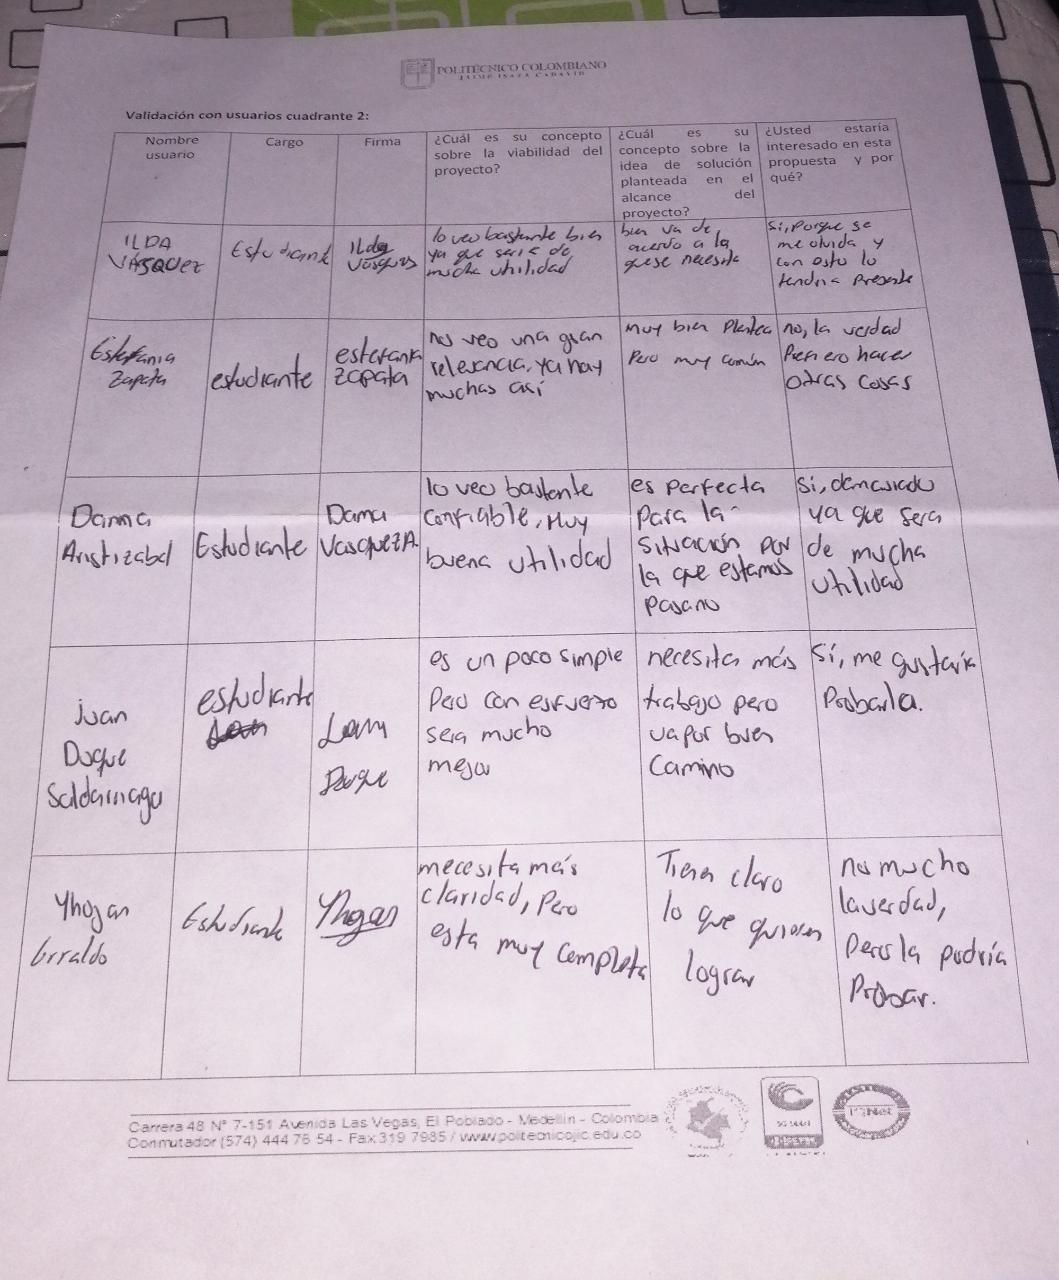 POLITÉCNICO COLOMBIANO
JAIME ISAZA CADAVID
Validación con usuarios cuadrante 2:
Nombre
usuario
Cargo
Firma
¿Cuál es su concepto
sobre la viabilidad del
proyecto?
¿Cuál es su
concepto sobre la
idea de solución
planteada en el
alcance del
proyecto?
¿Usted estaría
interesado en esta
propuesta y por
qué?
ILDA
VÁSQUEZ
Estudiante
Ilda
Vasquez
lo veo bastante bien
ya que seria de
mucha utilidad
bien va de
acuerdo a la
que se necesita
Si, Porque se
me olvida y
con esto lo
tendria Presente
Estefania
Zapata
estudiante
estefania
Zapata
no veo una gran
relevancia, ya hay
muchas así
muy bien Plantea
Pero muy común
no, la verdad
Prefiero hacer
otras cosas
Danna
Aristizabal
Estudiante
Danna
Vasquez A.
lo veo bastante
confiable, Muy
buena utilidad
es Perfecta
Para la
situación por
la que estamos
pasano
Si, demasiado
ya que sera
de mucha
utilidad
juan
Duque
Saldarriaga
estudiante
Duque
es un poco simple
Pero con esfuerzo
sera mucho
mejor
necesita más
trabajo pero
va por buen
Camino
Sí, me gustaría
Probarla.
Yhojan
Girraldo
Estudiante
Yhojan
necesita más
claridad, Pero
esta muy completa
Tienen claro
lo que quieren
lograr
no mucho
la verdad,
Pero la podría
Probar.
Carrera 48 N° 7-151 Avenida Las Vegas, El Poblado - Medellín - Colombia
Conmutador (574) 444 76 54 - Fax 319 7985 / www.politecnicojic.edu.co
IQNet